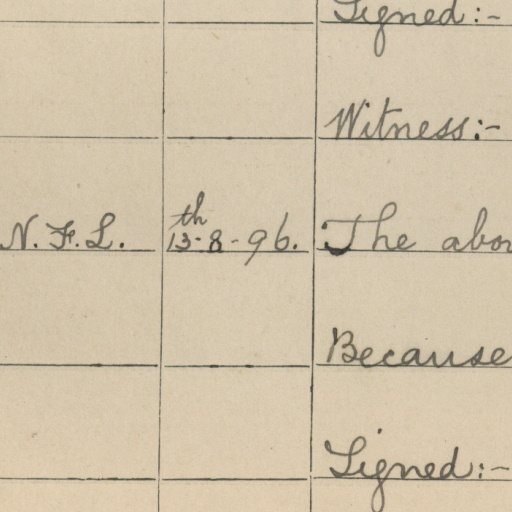 Signed:-
Witness:-
N. F. L. 13th-8-96. The abov
Because
Signed:-